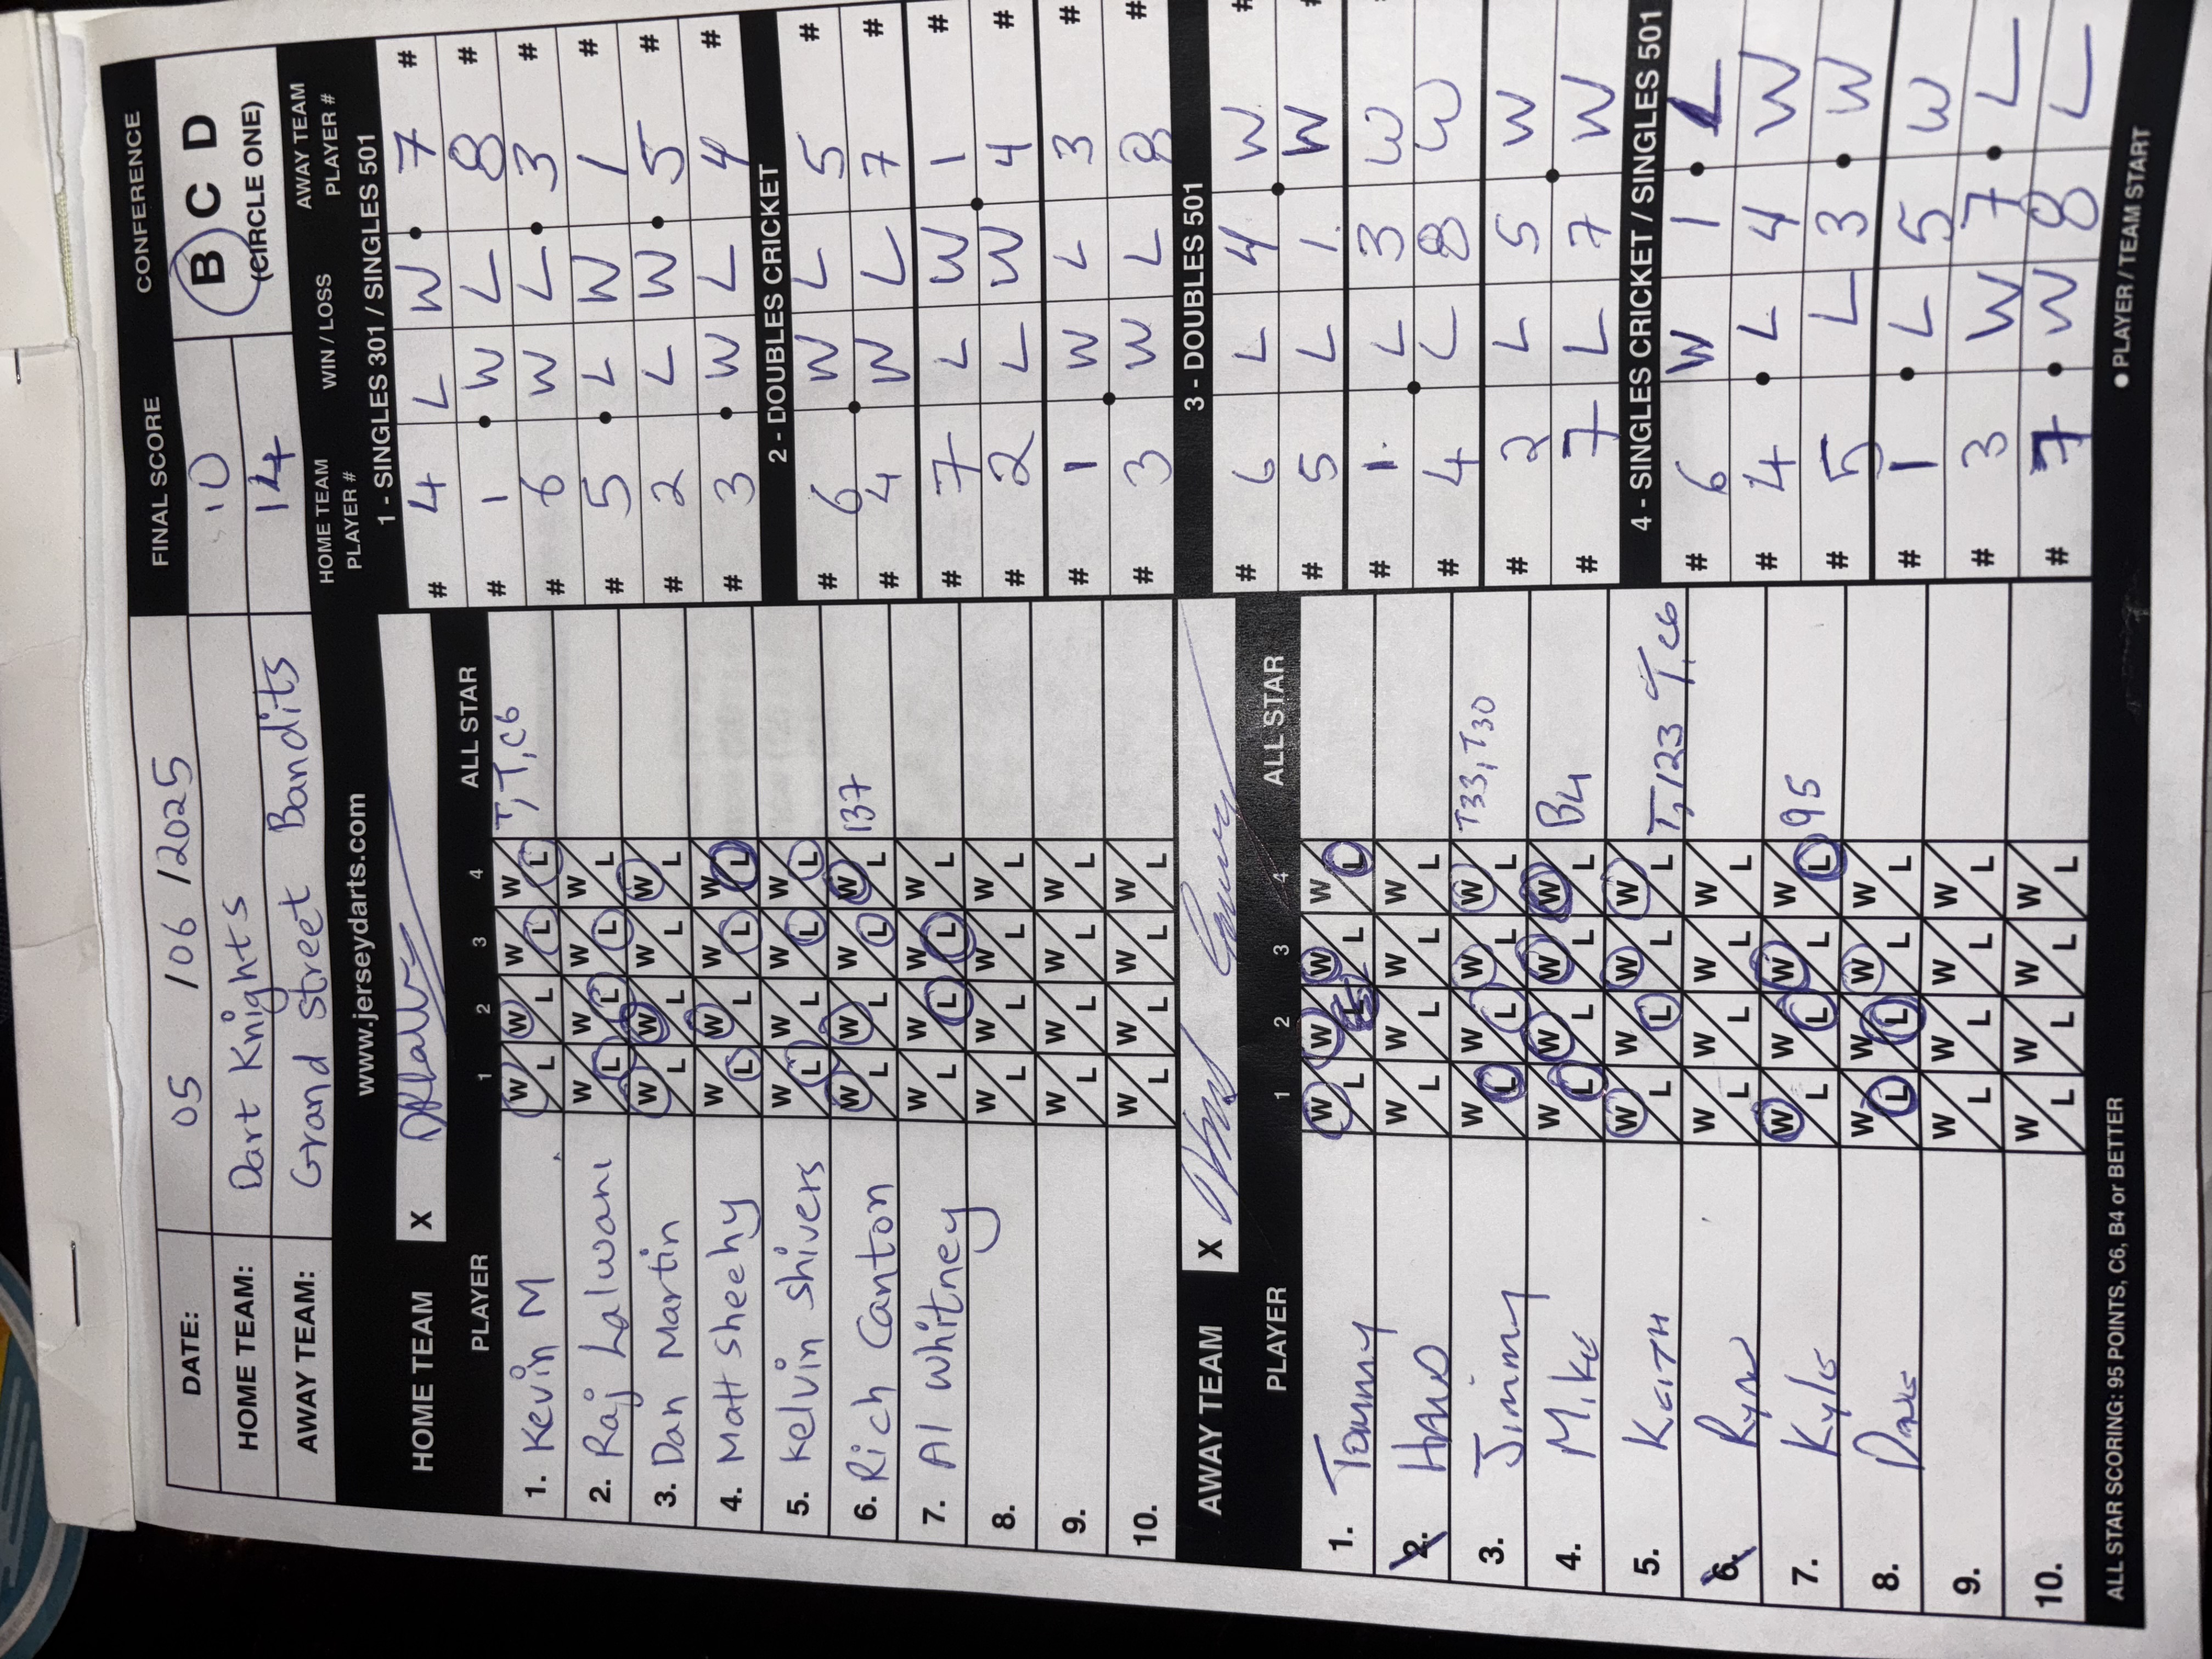 DATE: 05 / 06 / 2025 FINAL SCORE CONFERENCE
HOME TEAM: Dart Knights 10 B C D
AWAY TEAM: Grand Street Bandits 14 (CIRCLE ONE)
www.jerseydarts.com
HOME TEAM X
PLAYER 1 2 3 4 ALL STAR
1. Kevin M W L W L W L W L T, T, C6
2. Raj Lalwani W L W L W L W L
3. Dan Martin W L W L W L W L
4. Matt Sheehy W L W L W L W L
5. Kelvin Shivers W L W L W L W L
6. Rich Canton W L W L W L W L 137
7. Al Whitney W L W L W L W L
8. W L W L W L W L
9. W L W L W L W L
10. W L W L W L W L
AWAY TEAM X
PLAYER 1 2 3 4 ALL STAR
1. Tommy W L W L W L W L
2. W L W L W L W L
3. Jimmy W L W L W L W L T33, T30
4. Mike W L W L W L W L B4
5. KEITH W L W L W L W L T, 123 T, C6
6. Ryan W L W L W L W L
7. Kyle W L W L W L W L 95
8. W L W L W L W L
9. W L W L W L W L
10. W L W L W L W L
ALL STAR SCORING: 95 POINTS, C6, B4 or BETTER
HOME TEAM PLAYER # WIN / LOSS AWAY TEAM PLAYER #
1 - SINGLES 301 / SINGLES 501
# 4 L W 7 #
# 1 W L 8 #
# 6 W L 3 #
# 5 L W 1 #
# 2 L W 5 #
# 3 W L 4 #
2 - DOUBLES CRICKET
# 6 W L 5 #
# 4 W L 7 #
# 7 L W 1 #
# 2 L W 4 #
# 1 W L 3 #
# 3 W L 8 #
3 - DOUBLES 501
# 6 L 4 W #
# 5 L 1 W
# 1 L 3 W
# 4 L 8 W
# 2 L 5 W
# 7 L 7 W
4 - SINGLES CRICKET / SINGLES 501
# 6 W 1 L
# 4 L 4 W
# 5 L 3 W
# 1 L 5 W
# 3 W 7 L
# 7 W 8 L
● PLAYER / TEAM START